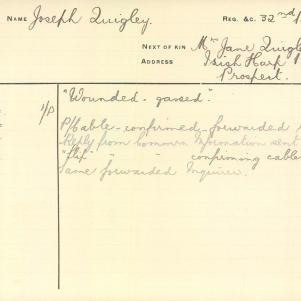 NAME Joseph Quigley. REG. &C. 32nd/
NEXT OF KIN Mrs Jane Quigl
ADDRESS Irish Harp
Prospect.
"Wounded - gassed".
P/Cable - confirmed - forwarded
Reply from common Information sent
" " confirming cable
Same forwarded Inquirer.